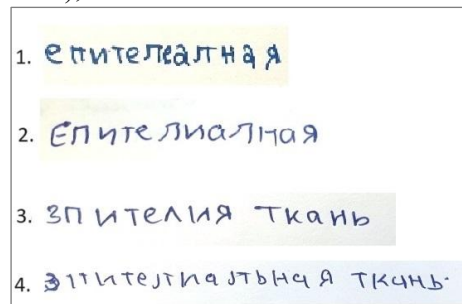 1. епителеалная
2. Епителиалная
3. зпителия ткань
4. эпителиальная ткань.